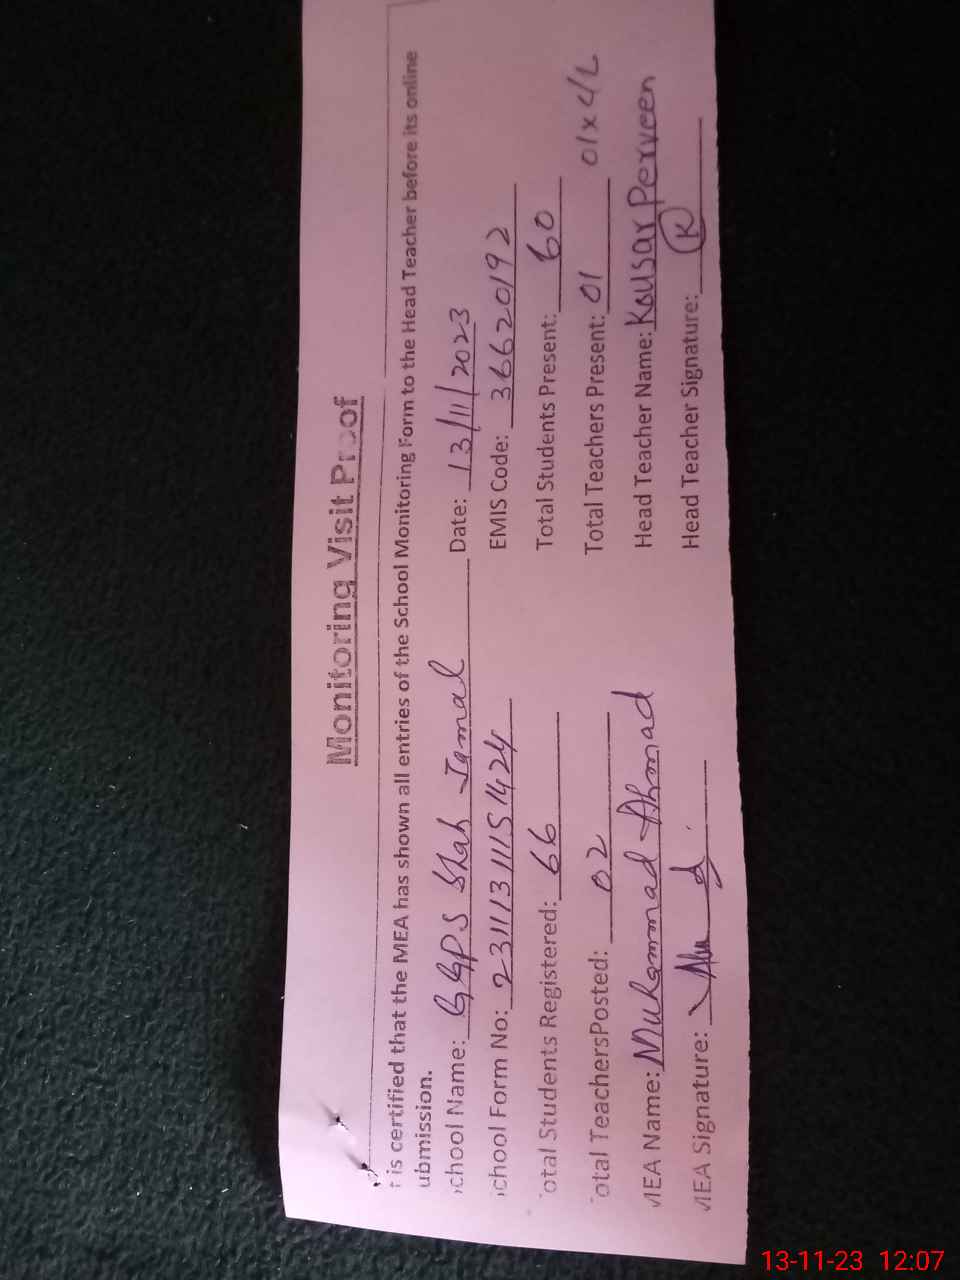 Monitoring Visit Proof
t is certified that the MEA has shown all entries of the School Monitoring Form to the Head Teacher before its online
ubmission.
chool Name: GGPS Shah Jamal Date: 13/11/2023
chool Form No: 23111311151424 EMIS Code: 36620192
otal Students Registered: 66 Total Students Present: 60
otal TeachersPosted: 02 Total Teachers Present: 01 01x c/L
MEA Name: Muhammad Ahmad Head Teacher Name: Kousar Perveen
MEA Signature: Head Teacher Signature: K
13-11-23 12:07